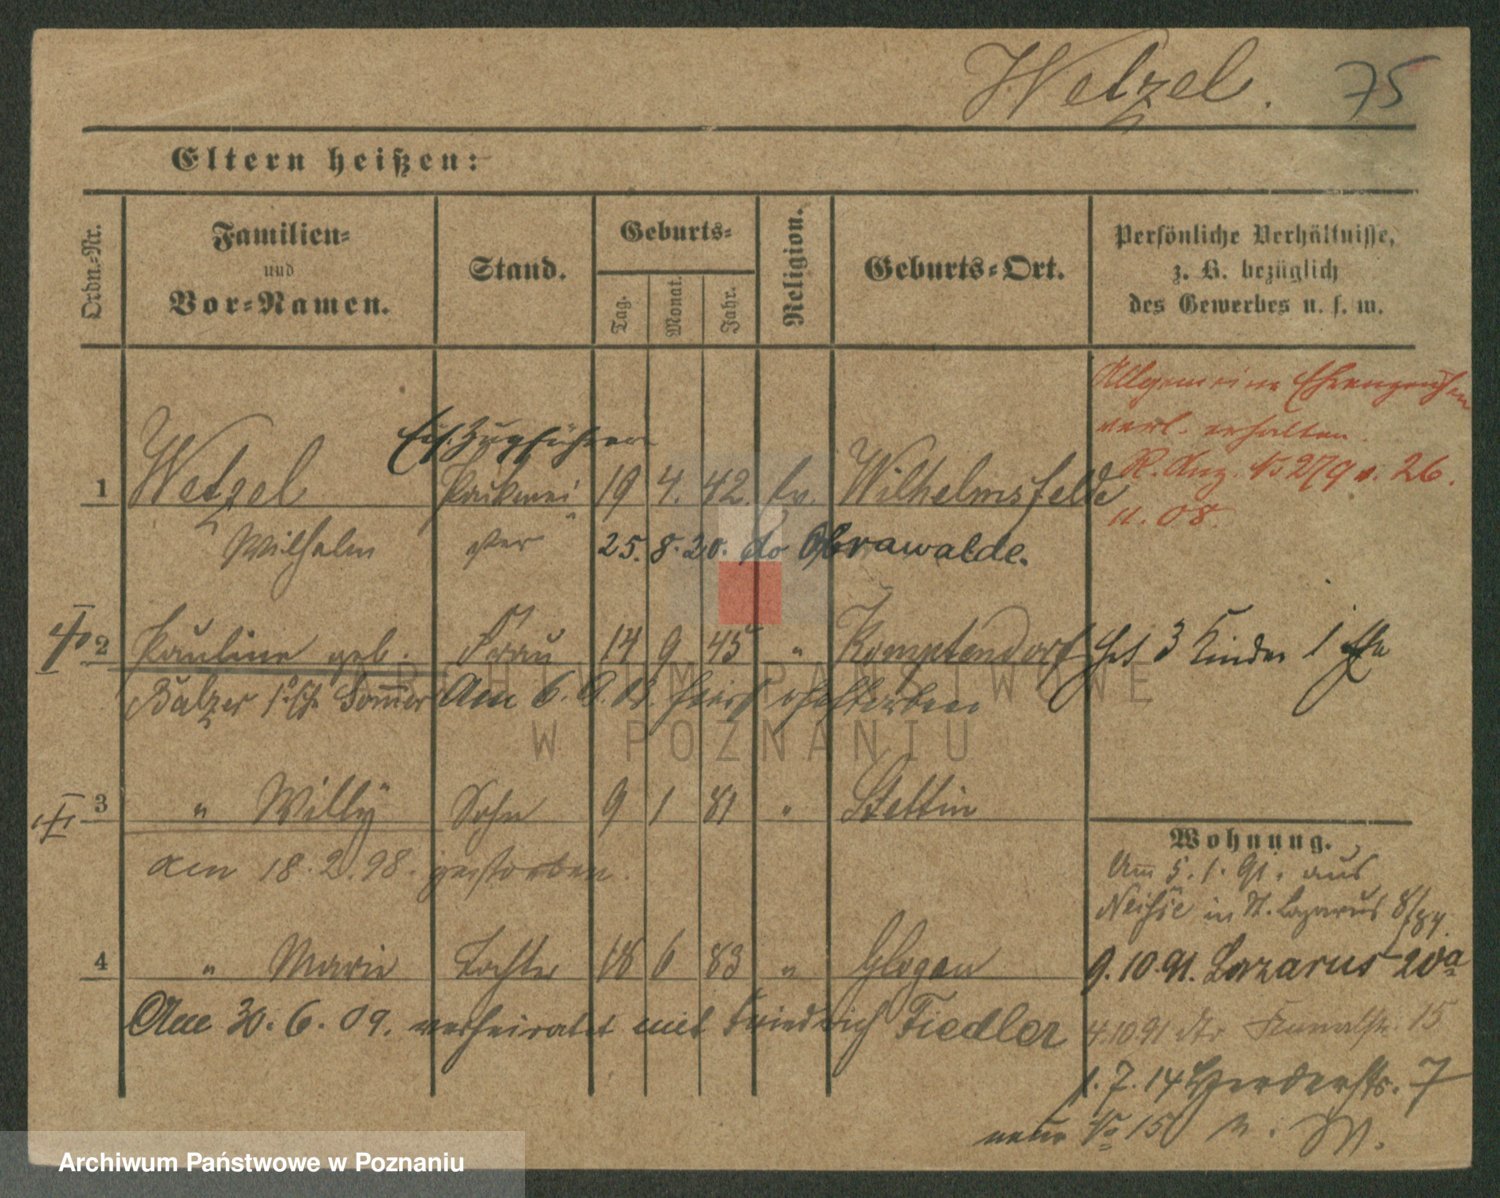 Wetzel. 75
Eltern heißen:
Ordn.-Nr.
Familien-
und
Vor-Namen.
Stand.
Geburts-
Tag.
Monat.
Jahr.
Religion.
Geburts-Ort.
Persönliche Verhältnisse,
z. B. bezüglich
des Gewerbes u. s. w.
Allgemeine Ehrenzeichen
verl. erhalten.
R. Anz. No 279 v. 26.
11. 08.
Zugführer
1 Wetzel Packmei 19 4. 42. ev. Wilhelmsfelde
Wilhelm ster 25. 8. 20. do Obrawalde.
2 Pauline geb. Frau 14 9 45 " Komptendorf hat 3 Kinder 1 Ehe
Balzer Sommer Am 6. verstorben
3 " Willÿ Sohn 9 1 81 " Stettin
am 18. 2. 98. gestorben.
4 " Marie Tochter 18 6 83 " Glogau
Am 30. 6. 09. verheiratet mit Friedrich Fiedler
Wohnung.
Am 5. 1. 91. aus
Neisse in St. Lazarus 8/84.
9. 10. 91. Lazarus 20a
4.10.91 15
1. 7. 14 Herderstr. 7
neue No 15
ARCHIWUM PAŃSTWOWE
W POZNANIU
Archiwum Państwowe w Poznaniu